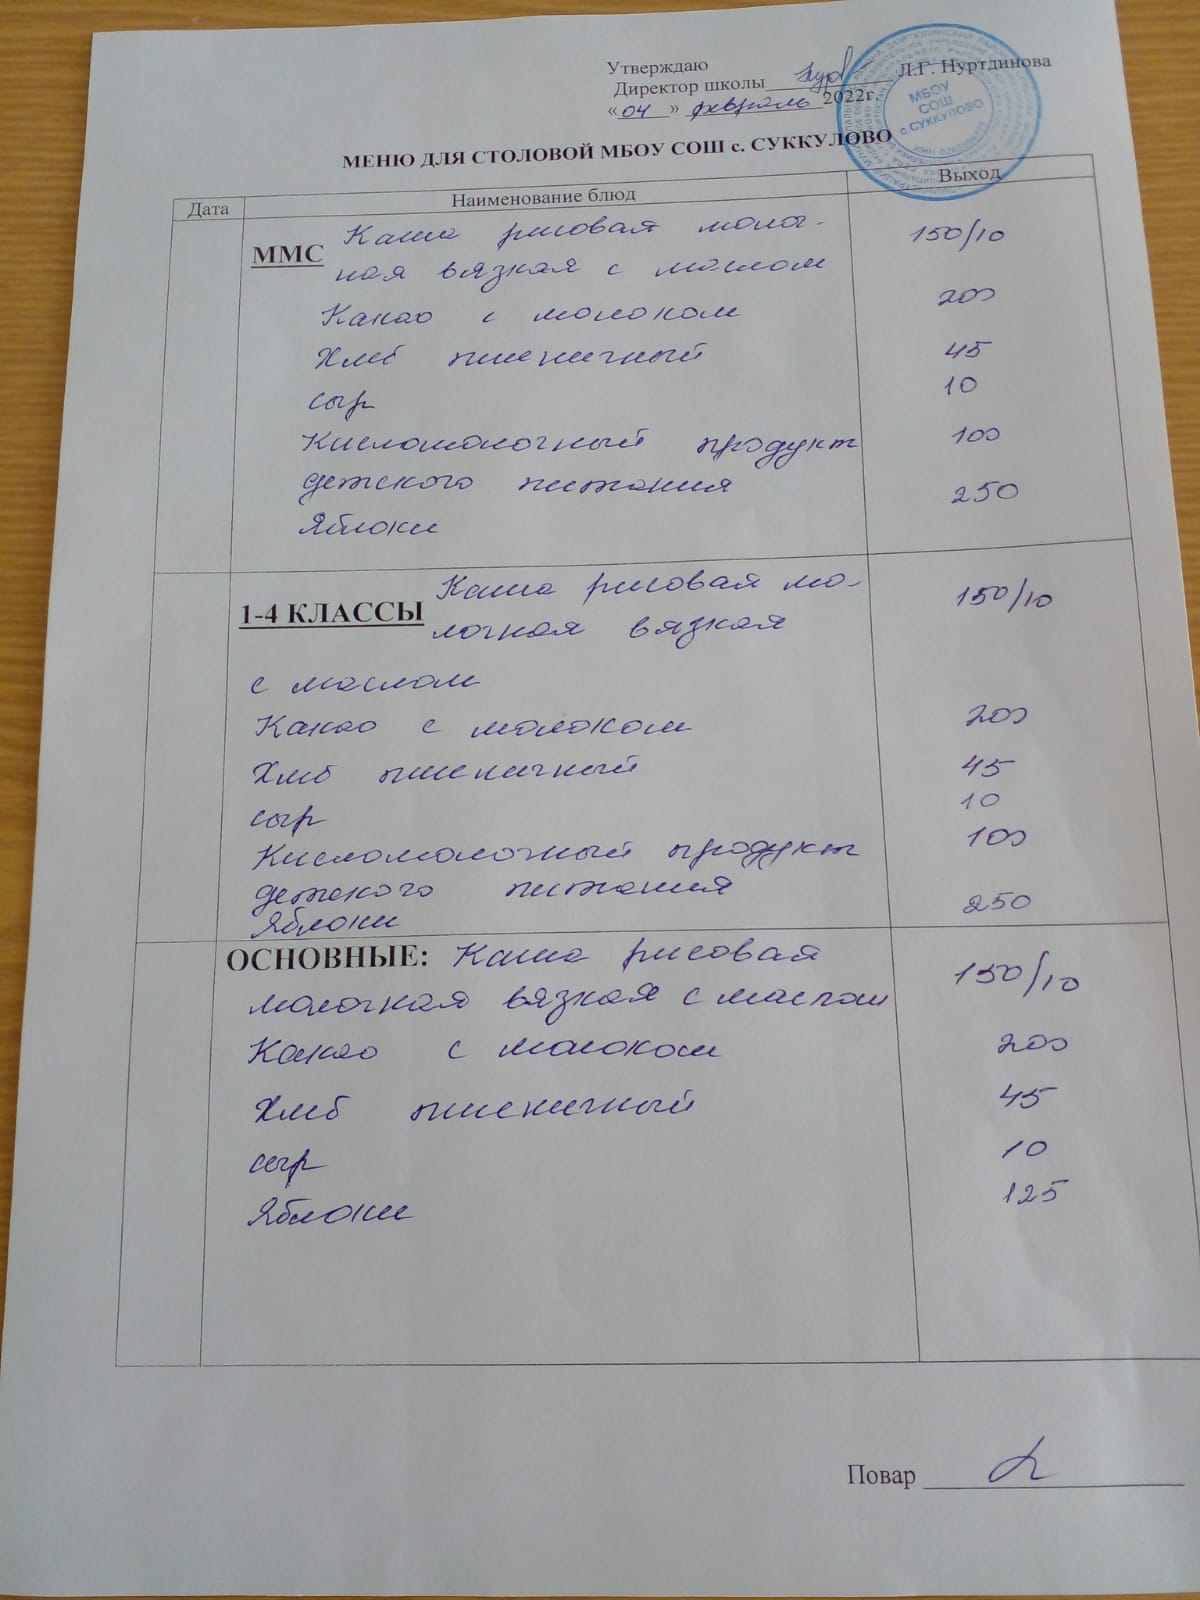 Утверждаю
Директор школы Л.Г. Нуртдинова
«04» февраль 2022г.
МБОУ
СОШ
с СУККУЛОВО
МЕНЮ ДЛЯ СТОЛОВОЙ МБОУ СОШ с. СУККУЛОВО
Дата Наименование блюд Выход
ММС Каша рисовая молоч- 150/10
ная вязкая с маслом
Какао с молоком 200
Хлеб пшеничный 45
сыр 10
Кисломолочный продукт 100
детского питания
Яблоки 250
1-4 КЛАССЫ Каша рисовая мо- 150/10
лочная вязкая
с маслом
Какао с молоком 200
Хлеб пшеничный 45
сыр 10
Кисломолочный продукт 100
детского питания
Яблоки 250
ОСНОВНЫЕ: Каша рисовая 150/10
молочная вязкая с маслом
Какао с молоком 200
Хлеб пшеничный 45
сыр 10
Яблоки 125
Повар